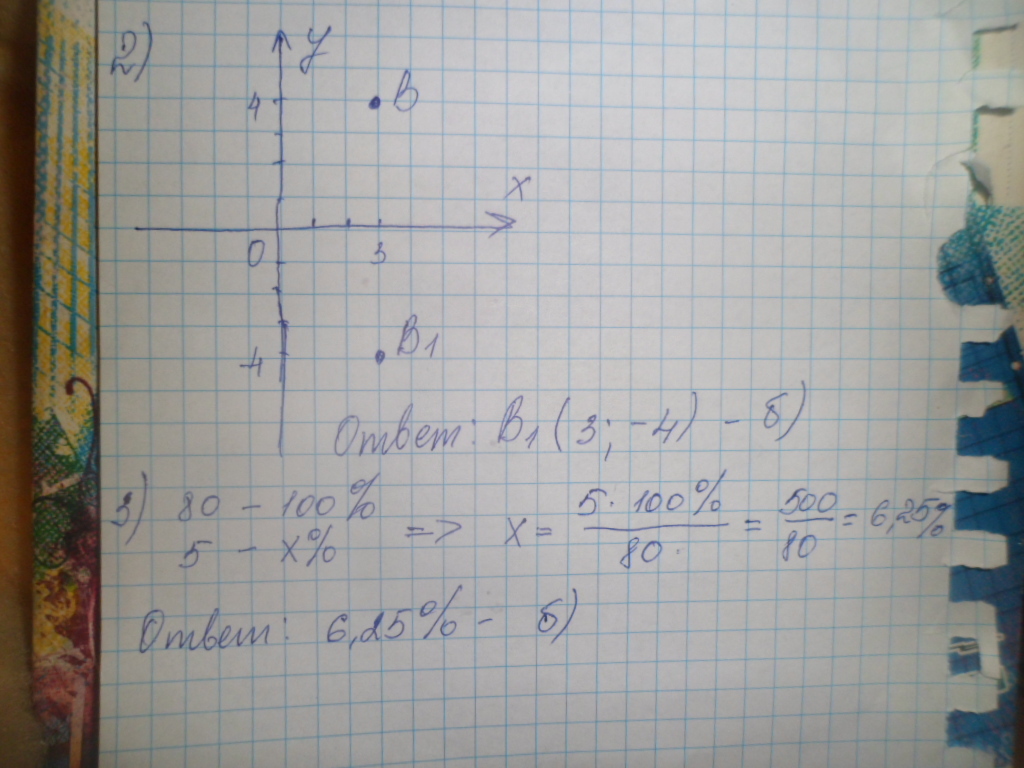 2)
y
4
B
x
0
3
-4
B₁
Ответ: B₁ (3; -4) - б)
3) 80 - 100%
5 - x% => x = 5 · 100% / 80 = 500 / 80 = 6,25%
Ответ: 6,25% - б)